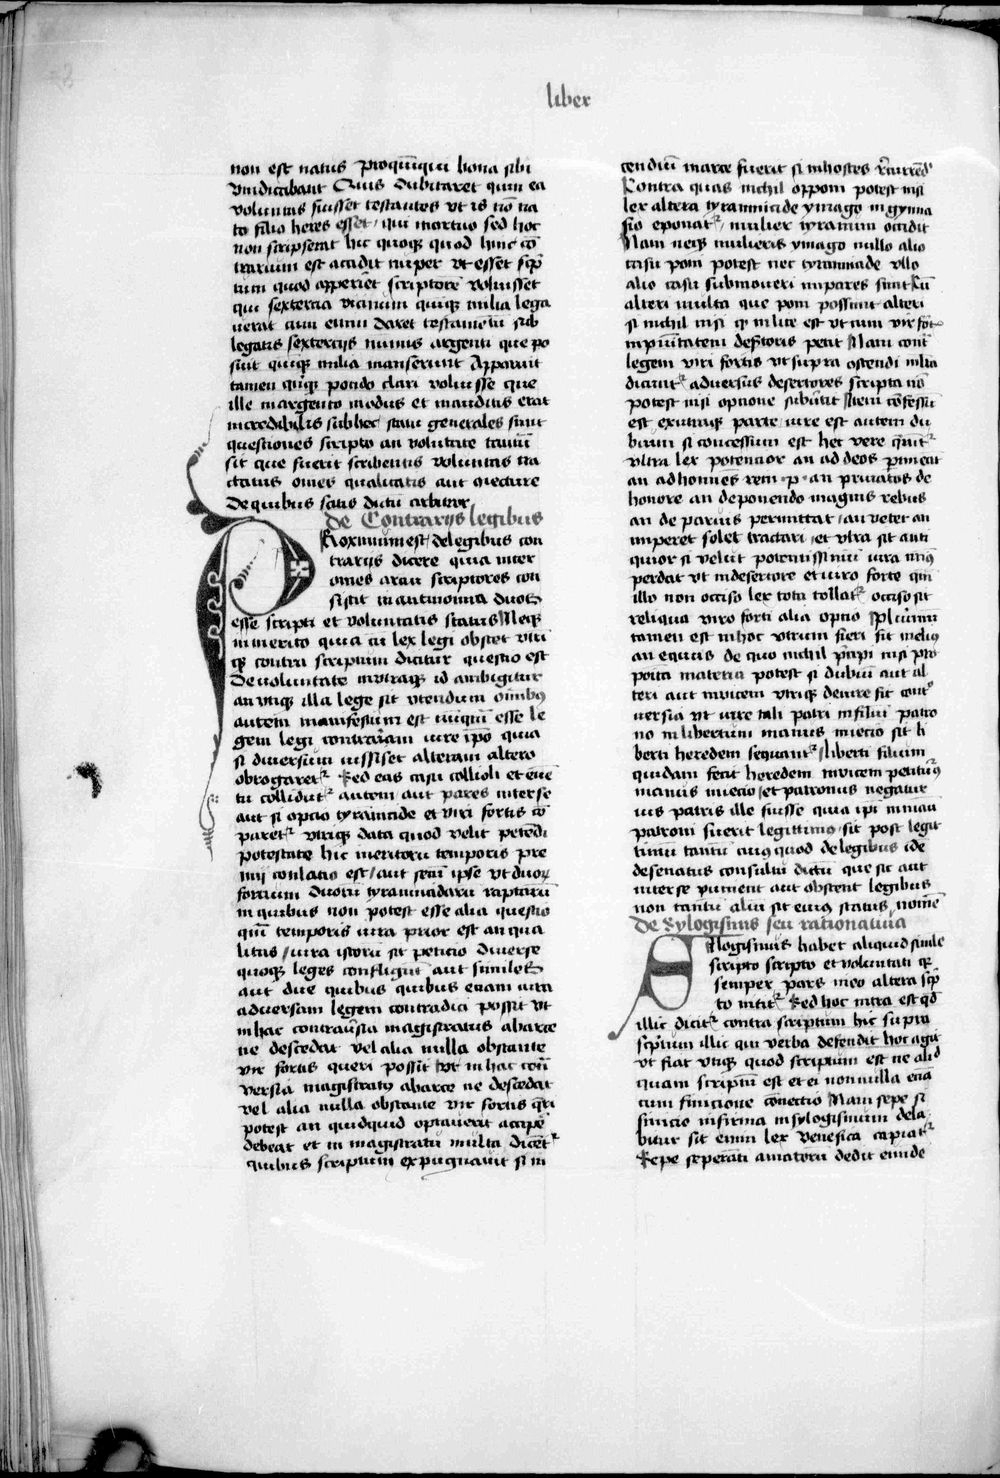 liber
non est natus Proqi͞nqui bona sibi
vindicabant Quis dubitaret quin ea
voluntas fuisset testantes vt is no͞ na
to filio heres esset / qui mortuo sed hoc
non scripserat hic quoqꝫ quod huic co͞
trarium est accidit nuper vt esset scp͞
tum quod apperie͞t scriptore͞ voluisset
qui sextercia vicinum quinqꝫ milia lega
uerat cum enim daret testame͞tu͞ sub
legatis sextercijs nu͞mis argenti que po
suit quinqꝫ milia manserunt Apparuit
tamen qui͞qꝫ pondo clari voluisse que
ille in argento modus et inauditus erat
incredibilis sub hoc / statu generales sunt
questiones scripto an voluntate tanu͞
sit que fuerit scribentis voluntas tra
ctatus omes qualitatis aut coniecture
De quibus satis dictu͞ arbitror
de Contrarijs legibus
Proximum est de legibus con
trarijs dicere quia inter
omes artiu͞ scriptores con
sistit in antinomia duos
esse scripti et voluntatis status Neqꝫ
inmerito quia cu͞ lex legi obstet vtri
qꝫ contra scriptum dicitur questio est
De voluntate in vtraqꝫ id ambigitur
an vtiqꝫ illa lege sit vtendum om͞ibꝰ
autem manifestum est nu͞qua͞ esse le
gem legi contraria͞m iure ip͞o quia
si diuersum iussisset alteram altero
obrogaretr Sed eas casu collioli et eue͞
tu colliditr autem aut pares inter se
aut si optio tyrannicide et viri fortis co͞
paretr vtriqꝫ data quod velit pete͞di
potestate hic meritoru͞ temporis pre
mij conlatio est / aut secu͞ ipse vt duoꝝ
fortium duoru͞ tyrannicidaru͞ raptaru͞
in quibus non potest esse alia questio
qua͞ temporis vtra prior est an qua
litas / vtra iustior sit peticio diuerse
quoqꝫ leges confligu͞t aut similes
aut due quibus quibus etiam citra
aduersam legem contradici possit vt
in hac controu͞sia magistratus ab arce
ne descedat vel alia nulla obstante
vir fortis queri possit vt in hac contro͞
versia magistratus ab arce ne descedat
vel alia nulla obstante vir fortis q͞ri
potest an quidquid optauerit accipe͞
debeat et in magistratu multa dice͞tr
quibus scriptum expugnauit si in
cendiu͞ in arce fuerit si in hostes
Contra quas nichil opponi potest nisi
lex altera tyrannicide ymago in gymna
sio eponatr / mulier tyrannum occidit
Nam neqꝫ mulieris ymago nullo alio
casu poni potest nec tyrannicide vllo
alio casu submoueri inpares sunt cu͞
alteri multa que poni possunt alteri
si nichil nisi qꝫ in lite est vt cum vir fort͞
inpunitatem des͞toris petit Nam cont͞
legem viri fortis vt supra ostendi m͞lta
dicuntr aduersus desertores scripta no͞
potest nisi optione subu͞ti Item co͞fessu͞
est ex vtraqꝫ parte iure est autem du
bium si concessum est hec vere queritr
vltra lex potencior an ad deos p͞tineat
an ad homines rem · p · an priuatos de
honore an de ponendo magnis rebus
an de paruis permittat / an vetet an
imperet solet tractari / et vltra sit anti
quior si velut potentissimu͞ vtra minꝰ
perdat vt in desertore et viro forte qm͞
illo non occiso lex tota tollatr occiso sit
reliqua viro forti alia optio Plurimu͞
tamen est in hoc vtrum fieri sit meliꝰ
an equius de quo nichil p͞cipi nisi pro
posita materia potest si dubiu͞ aut al
teri aut inuicem vtriqꝫ de iure fit contro
uersia vt iure tali patri in filiu͞ patro
no in libertum manus iniectio sit li
berti heredem sequantr / liberti filium
quidam fecit heredem inuicem petiturꝰ
manus iniectio / et patronus negatur
ius patris ille fuisse quia ip͞i in manu
patroni fuerit legittimꝰ sit post legit
timu͞ tantu͞ cuiꝰ quod de legibus ide͞
de senatus consultu͞ dictu͞ que sic aut
inter se pugnent aut obstent legibus
non tantu͞ aliu͞ sit eiusꝫ status nomine͞
de Sylogismis seu rationatiua
Silogismus habet aliquid simile
scripto scripto et voluntati qꝫ
semper pars in eo altera scp͞
to nititr Sed hoc intra est qd͞
illic dicitr contra scriptum hic supra
scp͞tum illic qui verba defendit hoc agit
vt fiat vtiqꝫ quod scriptum est ne aliud
quam scriptu͞ est et ei nonnulla etia͞
cum finicione co͞nectio Nam sepe si
finicio infirma in sylogismum dela
bitur sit enim lex venefica capiatr
Sepe seperati amatoru͞ dedit eunde